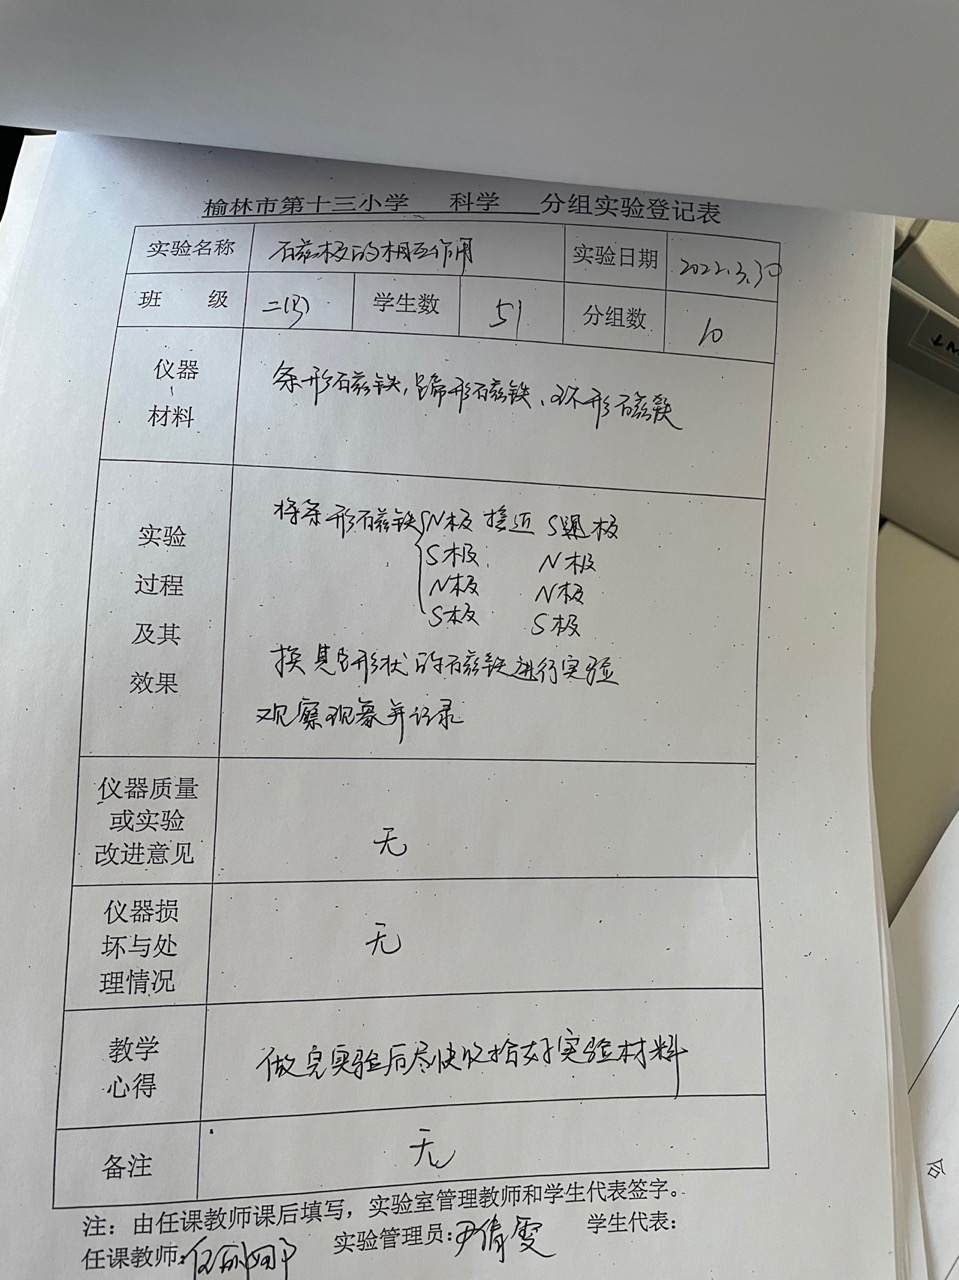 榆林市第十三小学 科学 分组实验登记表
实验名称 磁极的相互作用 实验日期 2022.3.30
班 级 二(3) 学生数 51 分组数 10
仪器
、
材料
条形磁铁,蹄形磁铁、环形磁铁
实验
过程
及其
效果
将条形磁铁 N极 接近 S 极
S极 N极
N极 N极
S极 S极
换其它形状的磁铁进行实验
观察现象并记录
仪器质量
或实验
改进意见
无
仪器损
坏与处
理情况
无
教学
心得
做完实验后尽快收拾好实验材料
备注 无
注:由任课教师课后填写,实验室管理教师和学生代表签字。
任课教师: 实验管理员:尹倩雯 学生代表: